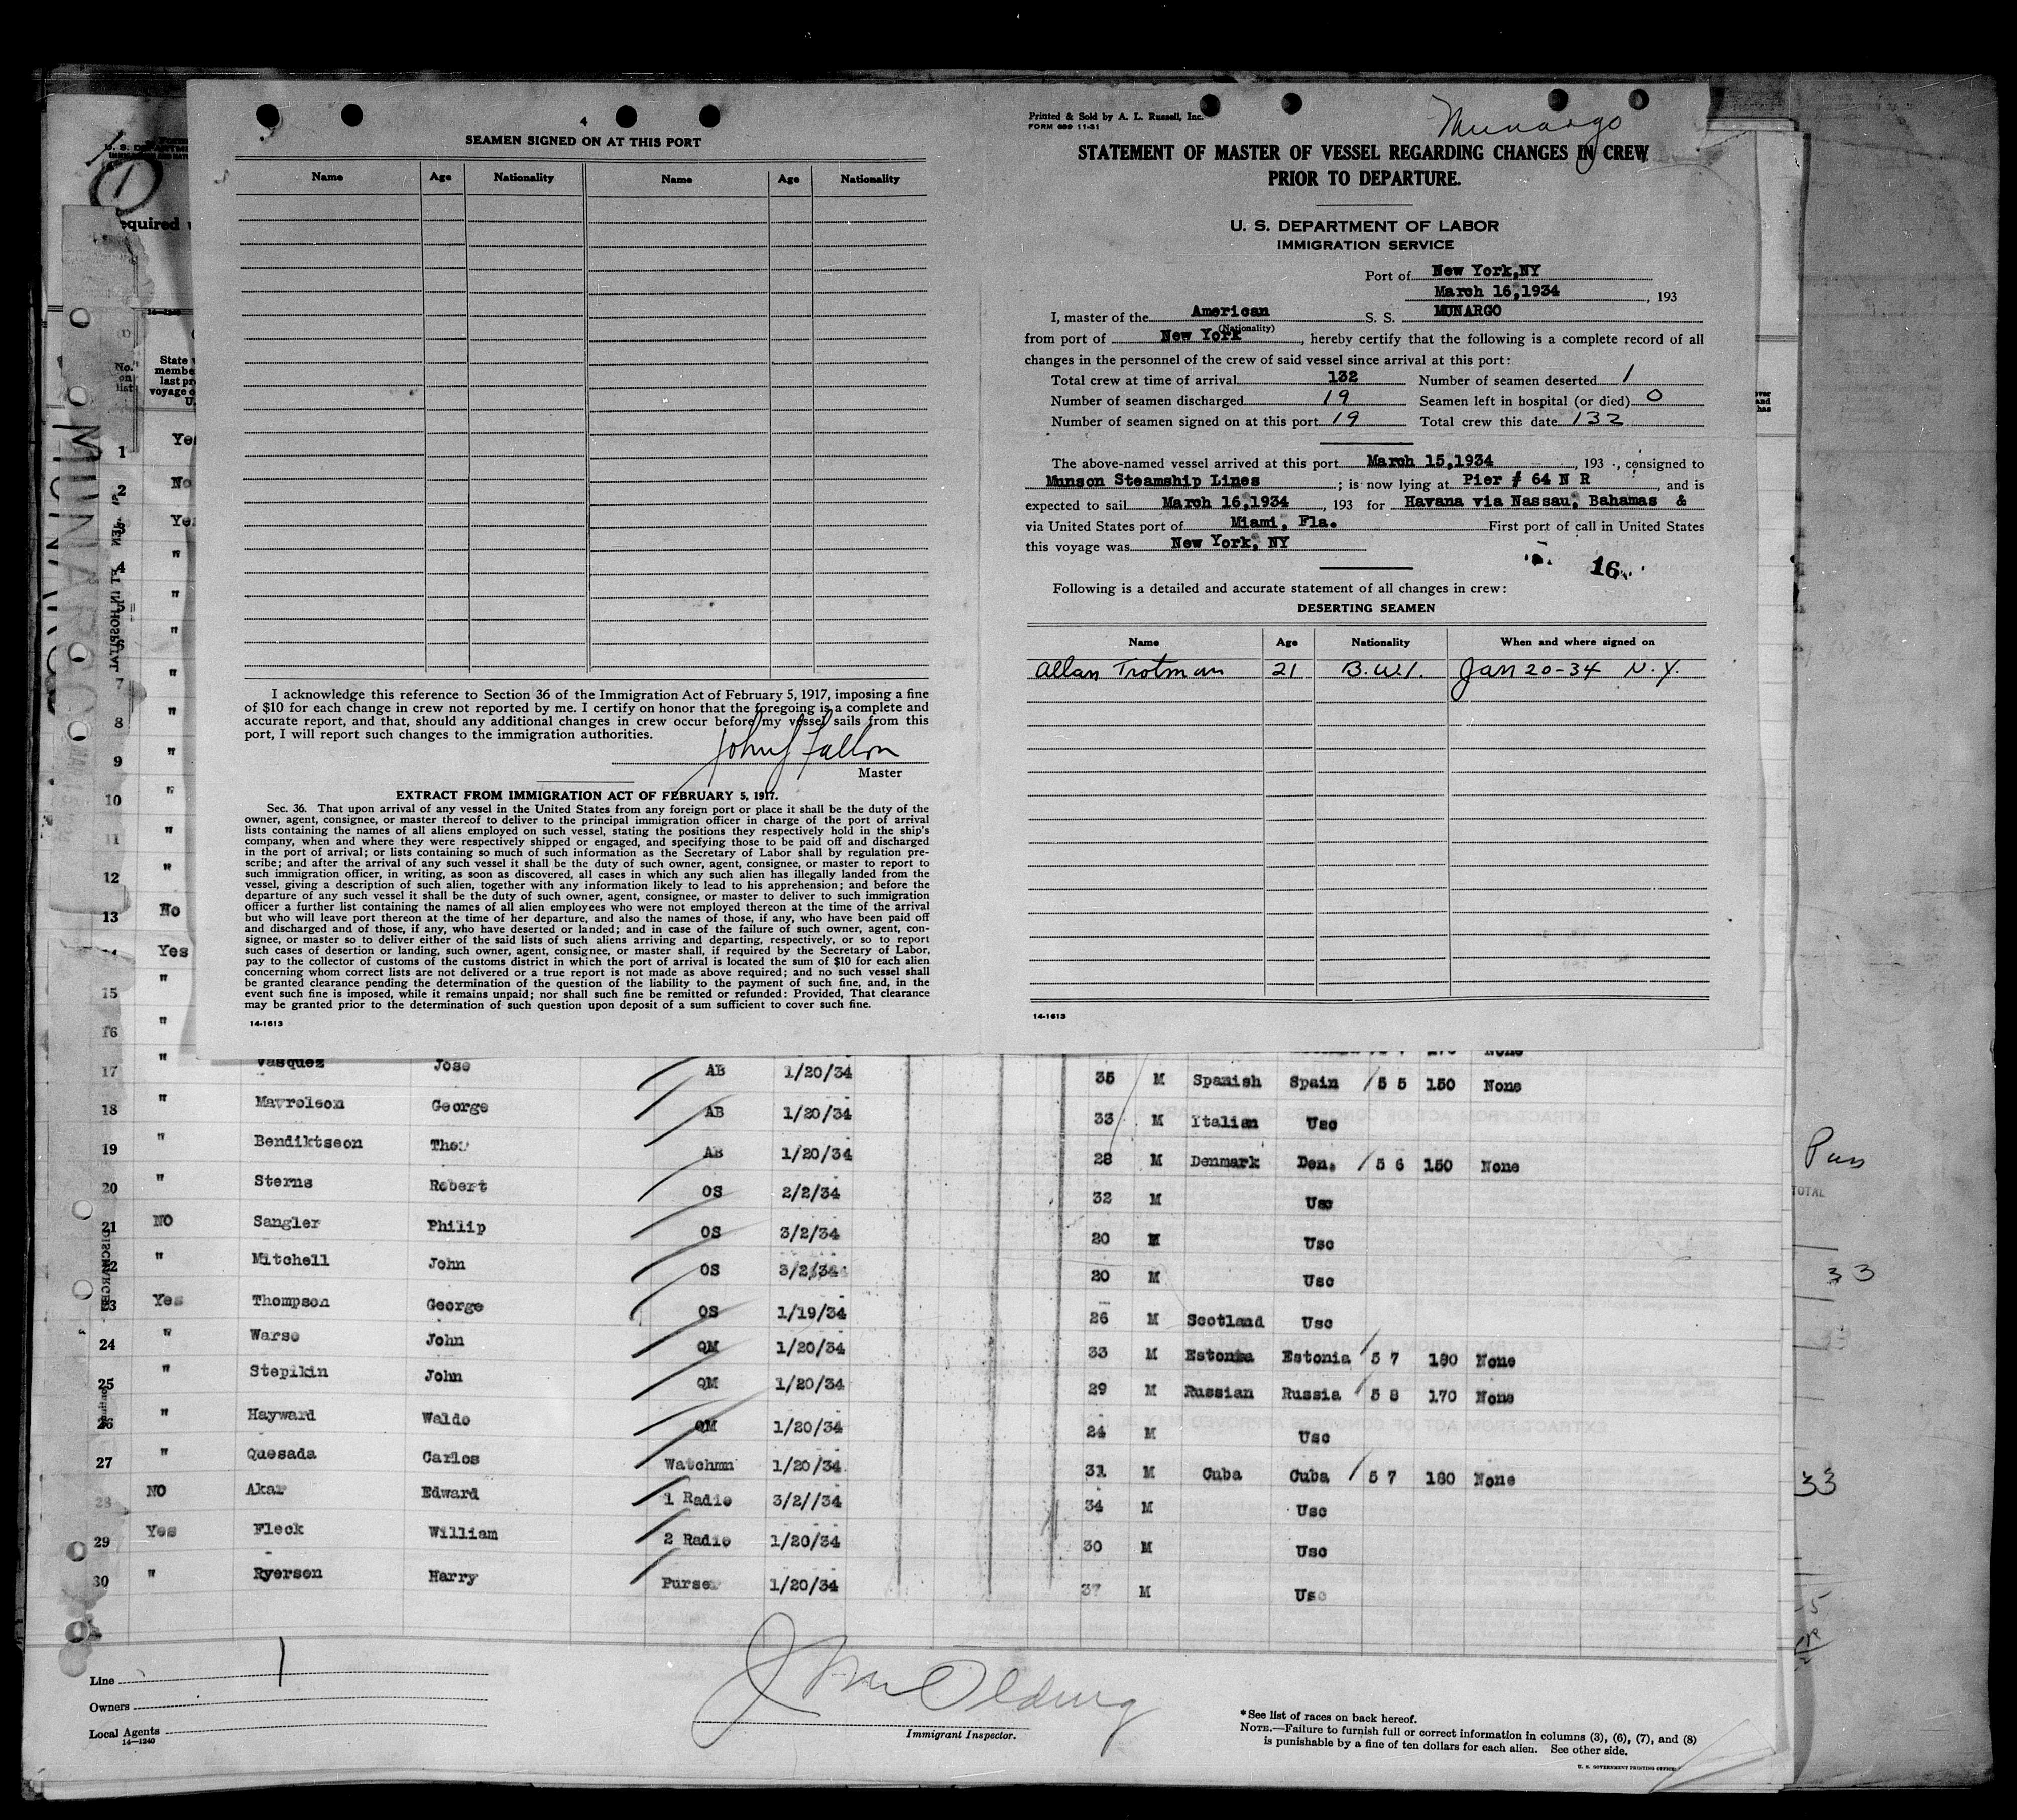 4
SEAMEN SIGNED ON AT THIS PORT
Name Age Nationality Name Age Nationality
I acknowledge this reference to Section 36 of the Immigration Act of February 5, 1917, imposing a fine
of $10 for each change in crew not reported by me. I certify on honor that the foregoing is a complete and
accurate report, and that, should any additional changes in crew occur before my vessel sails from this
port, I will report such changes to the immigration authorities.
John J Fallon
Master
EXTRACT FROM IMMIGRATION ACT OF FEBRUARY 5, 1917.
Sec. 36. That upon arrival of any vessel in the United States from any foreign port or place it shall be the duty of the
owner, agent, consignee, or master thereof to deliver to the principal immigration officer in charge of the port of arrival
lists containing the names of all aliens employed on such vessel, stating the positions they respectively hold in the ship's
company, when and where they were respectively shipped or engaged, and specifying those to be paid off and discharged
in the port of arrival; or lists containing so much of such information as the Secretary of Labor shall by regulation pre-
scribe; and after the arrival of any such vessel it shall be the duty of such owner, agent, consignee, or master to report to
such immigration officer, in writing, as soon as discovered, all cases in which any such alien has illegally landed from the
vessel, giving a description of such alien, together with any information likely to lead to his apprehension; and before the
departure of any such vessel it shall be the duty of such owner, agent, consignee, or master to deliver to such immigration
officer a further list containing the names of all alien employees who were not employed thereon at the time of the arrival
but who will leave port thereon at the time of her departure, and also the names of those, if any, who have been paid off
and discharged and of those, if any, who have deserted or landed; and in case of the failure of such owner, agent, con-
signee, or master so to deliver either of the said lists of such aliens arriving and departing, respectively, or so to report
such cases of desertion or landing, such owner, agent, consignee, or master shall, if required by the Secretary of Labor,
pay to the collector of customs of the customs district in which the port of arrival is located the sum of $10 for each alien
concerning whom correct lists are not delivered or a true report is not made as above required; and no such vessel shall
be granted clearance pending the determination of the question of the liability to the payment of such fine, and, in the
event such fine is imposed, while it remains unpaid; nor shall such fine be remitted or refunded: Provided, That clearance
may be granted prior to the determination of such question upon deposit of a sum sufficient to cover such fine.
14-1613
Printed & Sold by A. L. Russell, Inc.
FORM 689 11-31
Munargo
STATEMENT OF MASTER OF VESSEL REGARDING CHANGES IN CREW
PRIOR TO DEPARTURE.
U. S. DEPARTMENT OF LABOR
IMMIGRATION SERVICE
Port of New York,NY
March 16,1934, 193
I, master of the American S. S. MUNARGO
(Nationality)
from port of New York, hereby certify that the following is a complete record of all
changes in the personnel of the crew of said vessel since arrival at this port:
Total crew at time of arrival 132 Number of seamen deserted 1
Number of seamen discharged 19 Seamen left in hospital (or died) 0
Number of seamen signed on at this port 19 Total crew this date 132
The above-named vessel arrived at this port March 15,1934, 193 , consigned to
Munson Steamship Lines; is now lying at Pier # 64 N R, and is
expected to sail March 16,1934, 193 for Havana via Nassau, Bahamas &
via United States port of Miami, Fla. First port of call in United States
this voyage was New York, NY
16
Following is a detailed and accurate statement of all changes in crew:
DESERTING SEAMEN
Name Age Nationality When and where signed on
Allan Trotman 21 B.W.I. Jan 20-34 N.Y.
14-1613
1
MUNARGO
equired
No. on list
State
membe
last pr
voyage o
U.
1 Yes
2 No
3 Yes
4 "
5 "
6 "
7 "
8 "
9 "
10 "
11 "
12 "
13 No
14 Yes
15 "
16 "
17 " Vasquez Jose AB 1/20/34 35 M Spanish Spain 5 5 150 None
18 " Mavroleon George AB 1/20/34 33 M Italian Usc
19 " Bendiktseon Theo AB 1/20/34 28 M Denmark Den. 5 6 150 None
20 " Sterns Robert OS 2/2/34 32 M Usc
21 NO Sangler Philip OS 3/2/34 20 M Usc
22 " Mitchell John OS 3/2/34 20 M Usc
23 Yes Thompson George OS 1/19/34 26 M Scotland Usc
24 " Warse John QM 1/20/34 33 M Estonia Estonia 5 7 180 None
25 " Stepikin John QM 1/20/34 29 M Russian Russia 5 8 170 None
26 " Hayward Waldo QM 1/20/34 24 M Usc
27 " Quesada Carlos Watchmn 1/20/34 31 M Cuba Cuba 5 7 180 None
28 NO Akar Edward 1 Radio 3/2//34 34 M Usc
29 Yes Fleck William 2 Radio 1/20/34 30 M Usc
30 " Ryerson Harry Purser 1/20/34 37 M Usc
33
33
Line 1
Owners
Local Agents
14—1240
Immigrant Inspector.
*See list of races on back hereof.
NOTE.—Failure to furnish full or correct information in columns (3), (6), (7), and (8)
is punishable by a fine of ten dollars for each alien. See other side.
U. S. GOVERNMENT PRINTING OFFICE
TOTAL